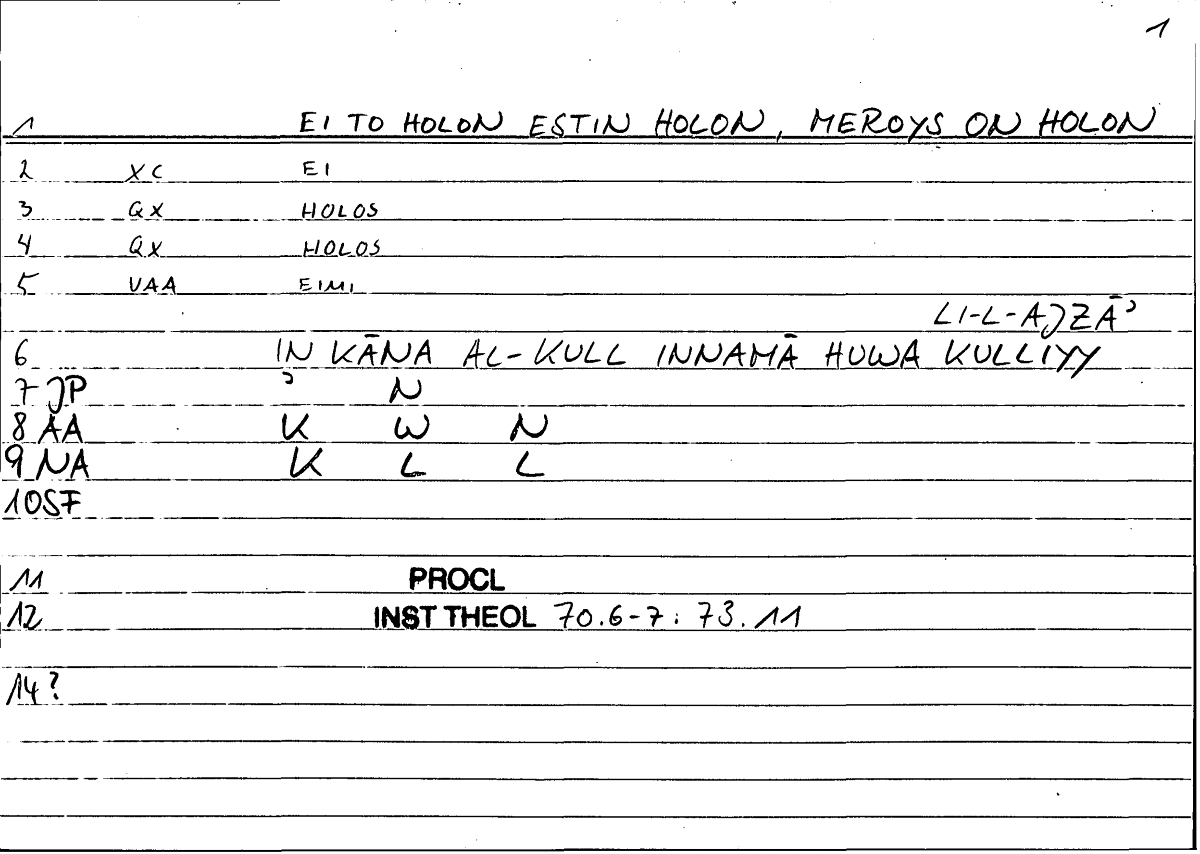 1
1 EI TO HOLON ESTIN HOLON, MEROYS ON HOLON
2 XC EI
3 QX HOLOS
4 QX HOLOS
5 VAA EIMI
LI-L-AJZĀʾ
6 IN KĀNA AL-KULL INNAMĀ HUWA KULLIYY
7 JP ʾ N
8 AA K W N
9 NA K L L
10 SF
11 PROCL
12 INST THEOL 70.6-7: 73.11
14?